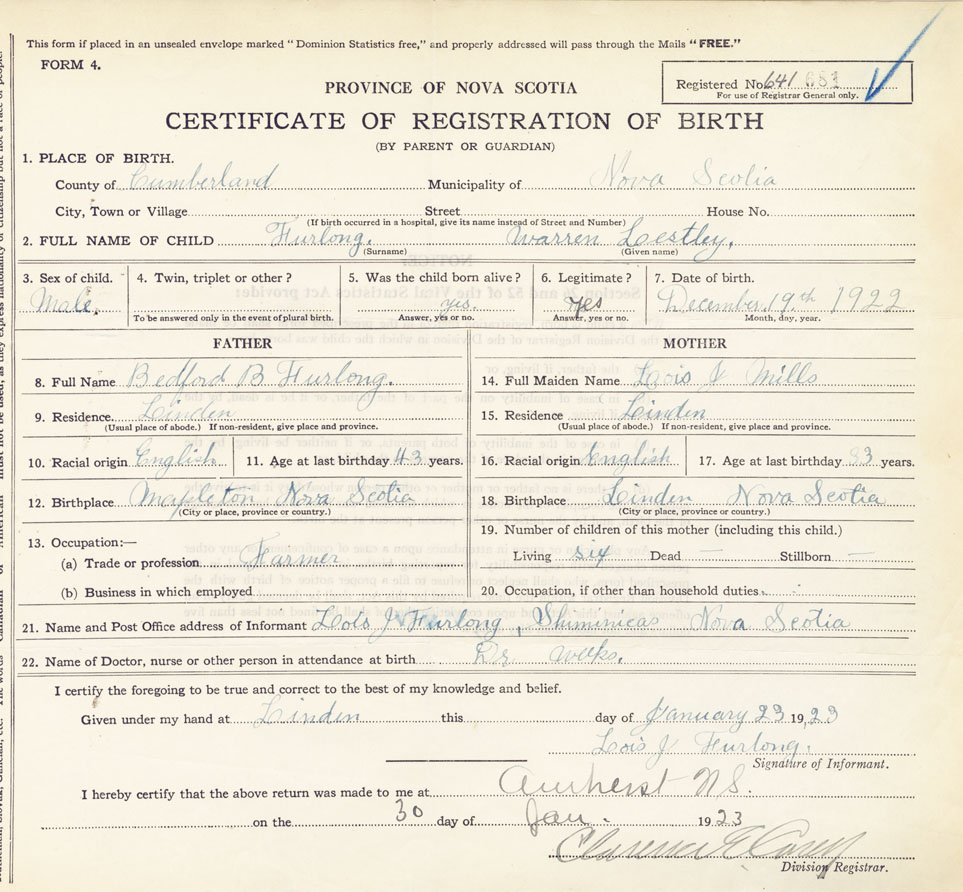 This form if placed in an unsealed envelope marked "Dominion Statistics free," and properly addressed will pass through the Mails "FREE."
FORM 4.
Registered No. 641 681
For use of Registrar General only.
PROVINCE OF NOVA SCOTIA
CERTIFICATE OF REGISTRATION OF BIRTH
(BY PARENT OR GUARDIAN)
1. PLACE OF BIRTH.
County of Cumberland Municipality of Nova Scotia
City, Town or Village Street House No.
(If birth occurred in a hospital, give its name instead of Street and Number)
2. FULL NAME OF CHILD Furlong. Warren Lestley.
(Surname) (Given name)
3. Sex of child. 4. Twin, triplet or other? 5. Was the child born alive? 6. Legitimate? 7. Date of birth.
Male. yes. yes December 19th 1922
To be answered only in the event of plural birth. Answer, yes or no. Answer, yes or no. Month, day, year.
FATHER MOTHER
8. Full Name Bedford B Furlong. 14. Full Maiden Name Lois J Mills
9. Residence. Linden 15. Residence Linden
(Usual place of abode.) If non-resident, give place and province. (Usual place of abode.) If non-resident, give place and province.
10. Racial origin English 11. Age at last birthday 43 years. 16. Racial origin English 17. Age at last birthday 33 years.
12. Birthplace Mapleton Nova Scotia 18. Birthplace Linden Nova Scotia
(City or place, province or country.) (City or place, province or country.)
13. Occupation:— 19. Number of children of this mother (including this child.)
(a) Trade or profession Farmer Living six Dead — Stillborn —
(b) Business in which employed 20. Occupation, if other than household duties
21. Name and Post Office address of Informant Lois J Furlong, Shiminicas Nova Scotia
22. Name of Doctor, nurse or other person in attendance at birth Dr Weeks.
I certify the foregoing to be true and correct to the best of my knowledge and belief.
Given under my hand at Linden this day of January 23 1923
Lois J Furlong.
Signature of Informant.
I hereby certify that the above return was made to me at Amherst N.S.
on the 30 day of Jan. 1923
Clarence E Casey
Division Registrar.